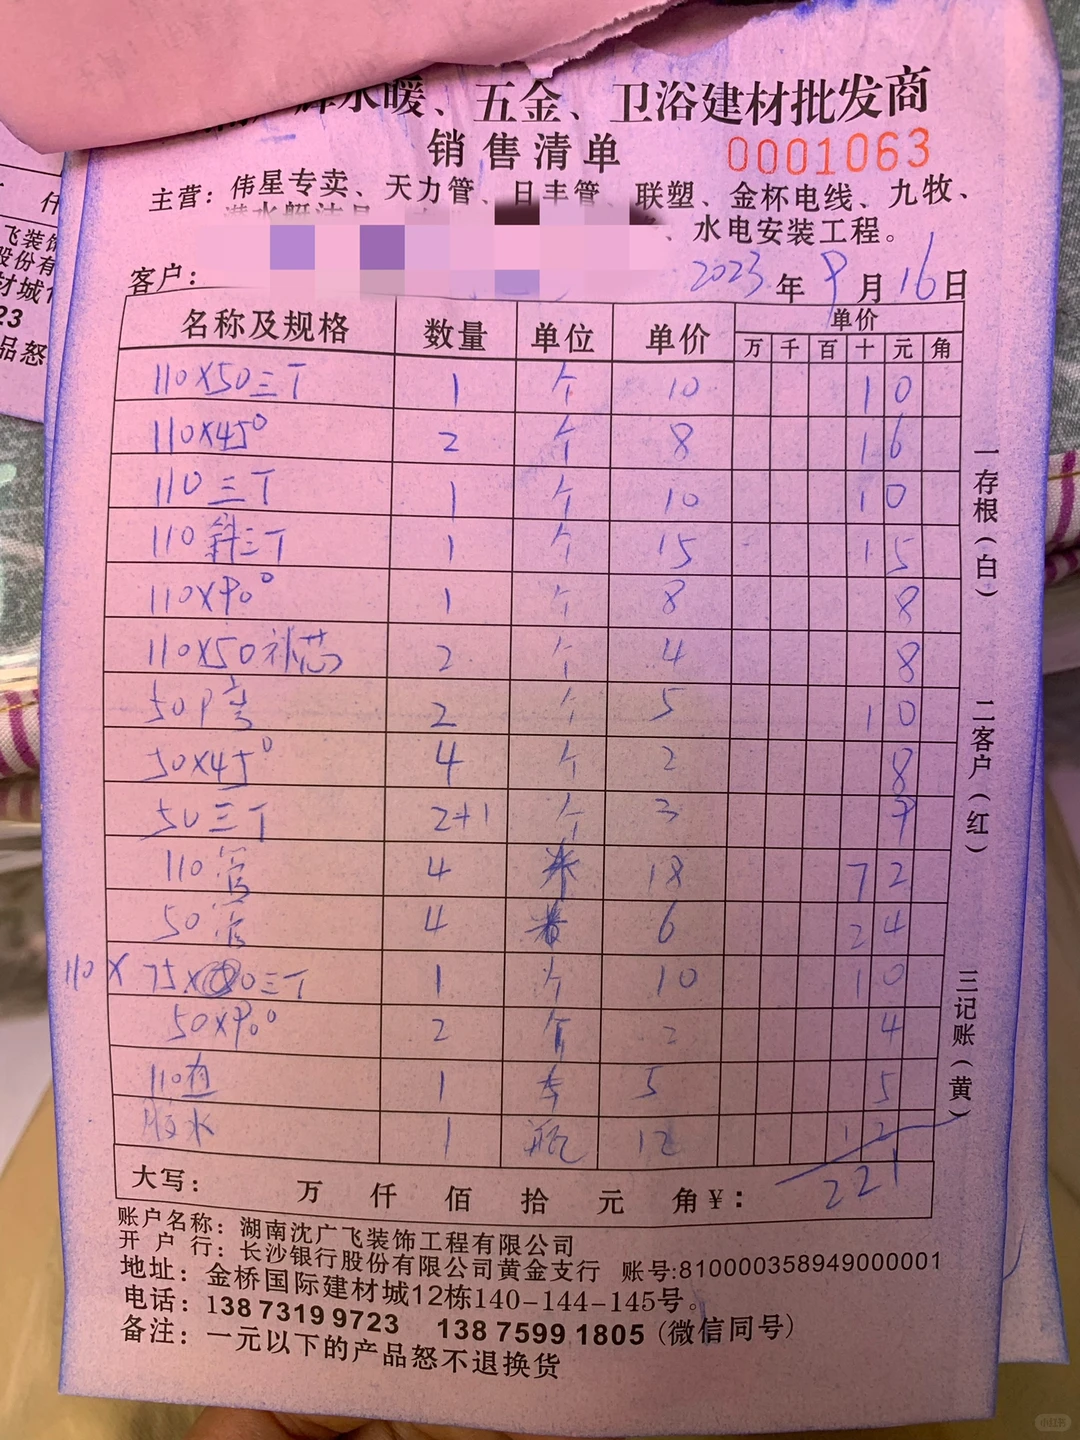 水暖、五金、卫浴建材批发商
销售清单 0001063
主营：伟星专卖、天力管、日丰管、联塑、金杯电线、九牧、
、水电安装工程。
客户： 2023年9月16日
名称及规格 数量 单位 单价 单价
万 千 百 十 元 角
110X50三丁 1 个 10 10
110X45° 2 个 8 16
110三丁 1 个 10 10
110斜三丁 1 个 15 15
110X90° 1 个 8 8
110X50补芯 2 个 4 8
50P弯 2 个 5 10
50X45° 4 个 2 8
50三丁 2+1 个 3 9
110管 4 米 18 72
50管 4 6 24
110X75X50三丁 1 个 10 10
50X90° 2 个 2 4
110直 1 5 5
胶水 1 瓶 12 12
大写： 万 仟 佰 拾 元 角¥： 221
账户名称：湖南沈广飞装饰工程有限公司
开户行：长沙银行股份有限公司黄金支行 账号:810000358949000001
地址：金桥国际建材城12栋140-144-145号。
电话：138 7319 9723 138 7599 1805 (微信同号)
备注：一元以下的产品怒不退换货
一存根（白）
二客户（红）
三记账（黄）
飞装饰
股份有
材城1
23
品怒
小红书